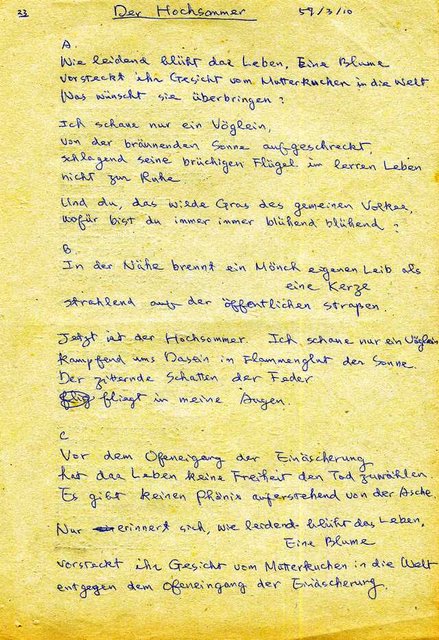 33 Der Hochsommer 59/3/10
A
Wie leidend blüht das Leben. Eine Blume
vorsteckt ihr Gesicht vom Mutterkuchen in die Welt
Was wünscht sie überbringen?
Ich schaue nur ein Vöglein,
von der brännenden Sonne aufgeschreckt,
schlagend seine brüchigen Flügel im lerren Leben
nicht zur Ruhe
Und du, das wilde Gras des gemeinen Volkes,
wofür bist du immer immer blühend blühend?
B
In der Nähe brennt ein Mönch eigenen Leib als
eine Kerze
strahlend auf der öffentlichen strapen.
Jetzt ist der Hochsommer. Ich schaue nur ein Vöglein
kampfend ums Dasein in Flammenglut der Sonne.
Der zitternde Schatten der Feder
fliegt in meine Augen.
C
Vor dem Ofeneigang der Einäscherung
hat das Leben keine Freiheit den Tod zuwählen.
Es gibt keinen Phönix auferstehend von der Asche.
Nur erinnert sich, wie leidend blüht das Leben.
Eine Blume
vorsteckt ihr Gesicht vom Mutterkuchen in die Welt
entgegen dem Ofeneingang der Einäscherung.